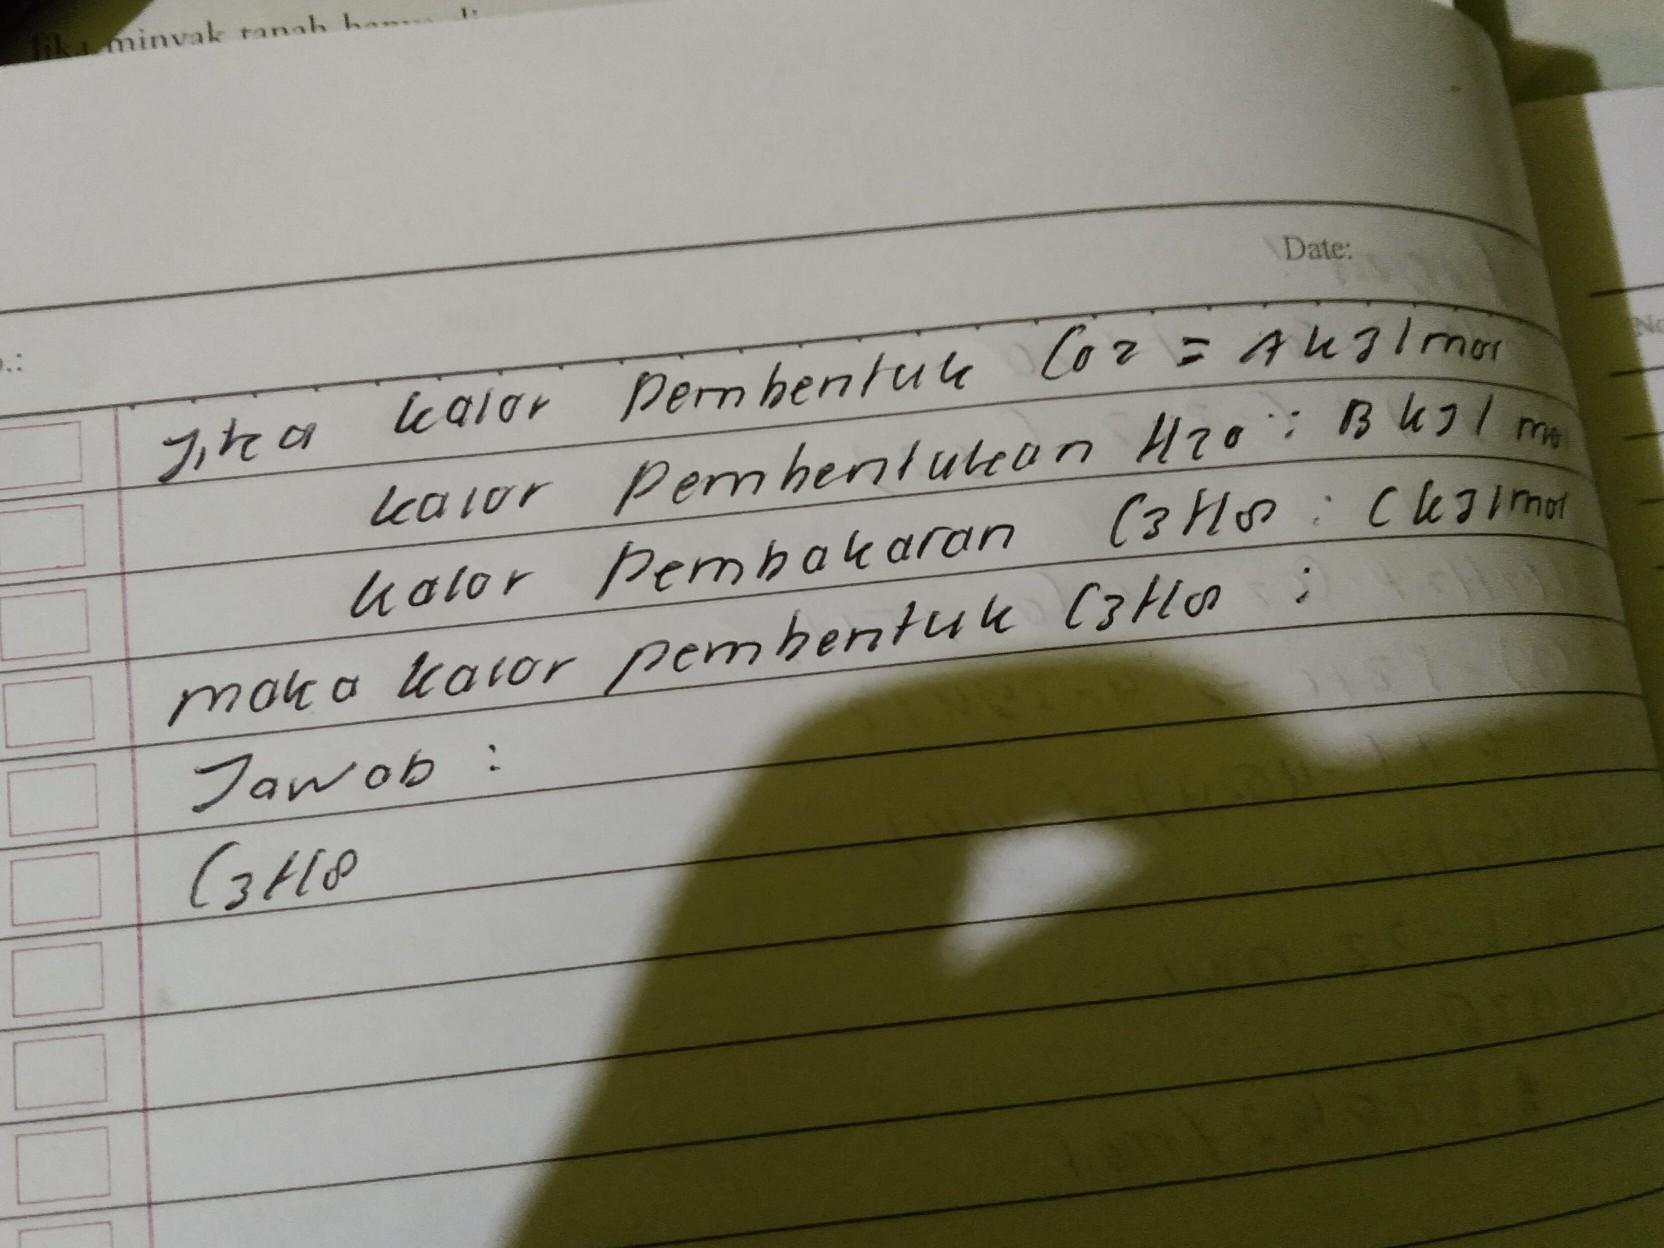 Jika minyak tanah hanya di
Date:
No
Jika kalor pembentuk CO2 = A kJ/mol
kalor pembentukan H2O : B kJ/mo
kalor pembakaran C3H8 : C kJ/mol
maka kalor pembentuk C3H8 :
Jawab :
C3H8